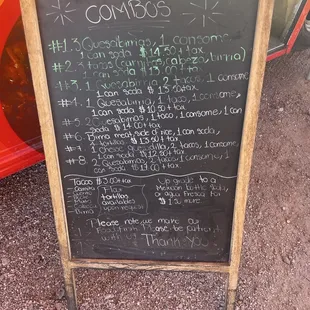 COMBOS
#1. 3 Quesabirrias, 1 consome,
1 can soda $14.50 + tax
#2. 3 tacos (carnitas, cabeza, birria)
1 can soda $13.00 + tax
#3. 1 Quesabirria, 2 tacos, 1 consome
1 can soda $13.50 + tax
#4. 1 Quesabirria, 1 taco, 1 consome,
1 can soda $10.50 + tax
#5. 2 Quesabirrias, 1 taco, 1 consome, 1 can
soda $14.00 + tax
#6. Birria meat, side of rice, 1 can soda,
tortillas $13.50 + tax
#7. 1 cheese quesadilla, 2 tacos, 1 consome,
1 can soda $12.50 + tax
#8. 2 Quesabirrias, 2 tacos, 1 consome, 1
can soda + tax
Tacos $3.00 + tax
Birria
Flour
tortillas
available
upon request
Upgrade to a
Mexican bottle soda,
or agua fresca for
$1.50 more
Please note we make our
food from Please be patient
with Thank you